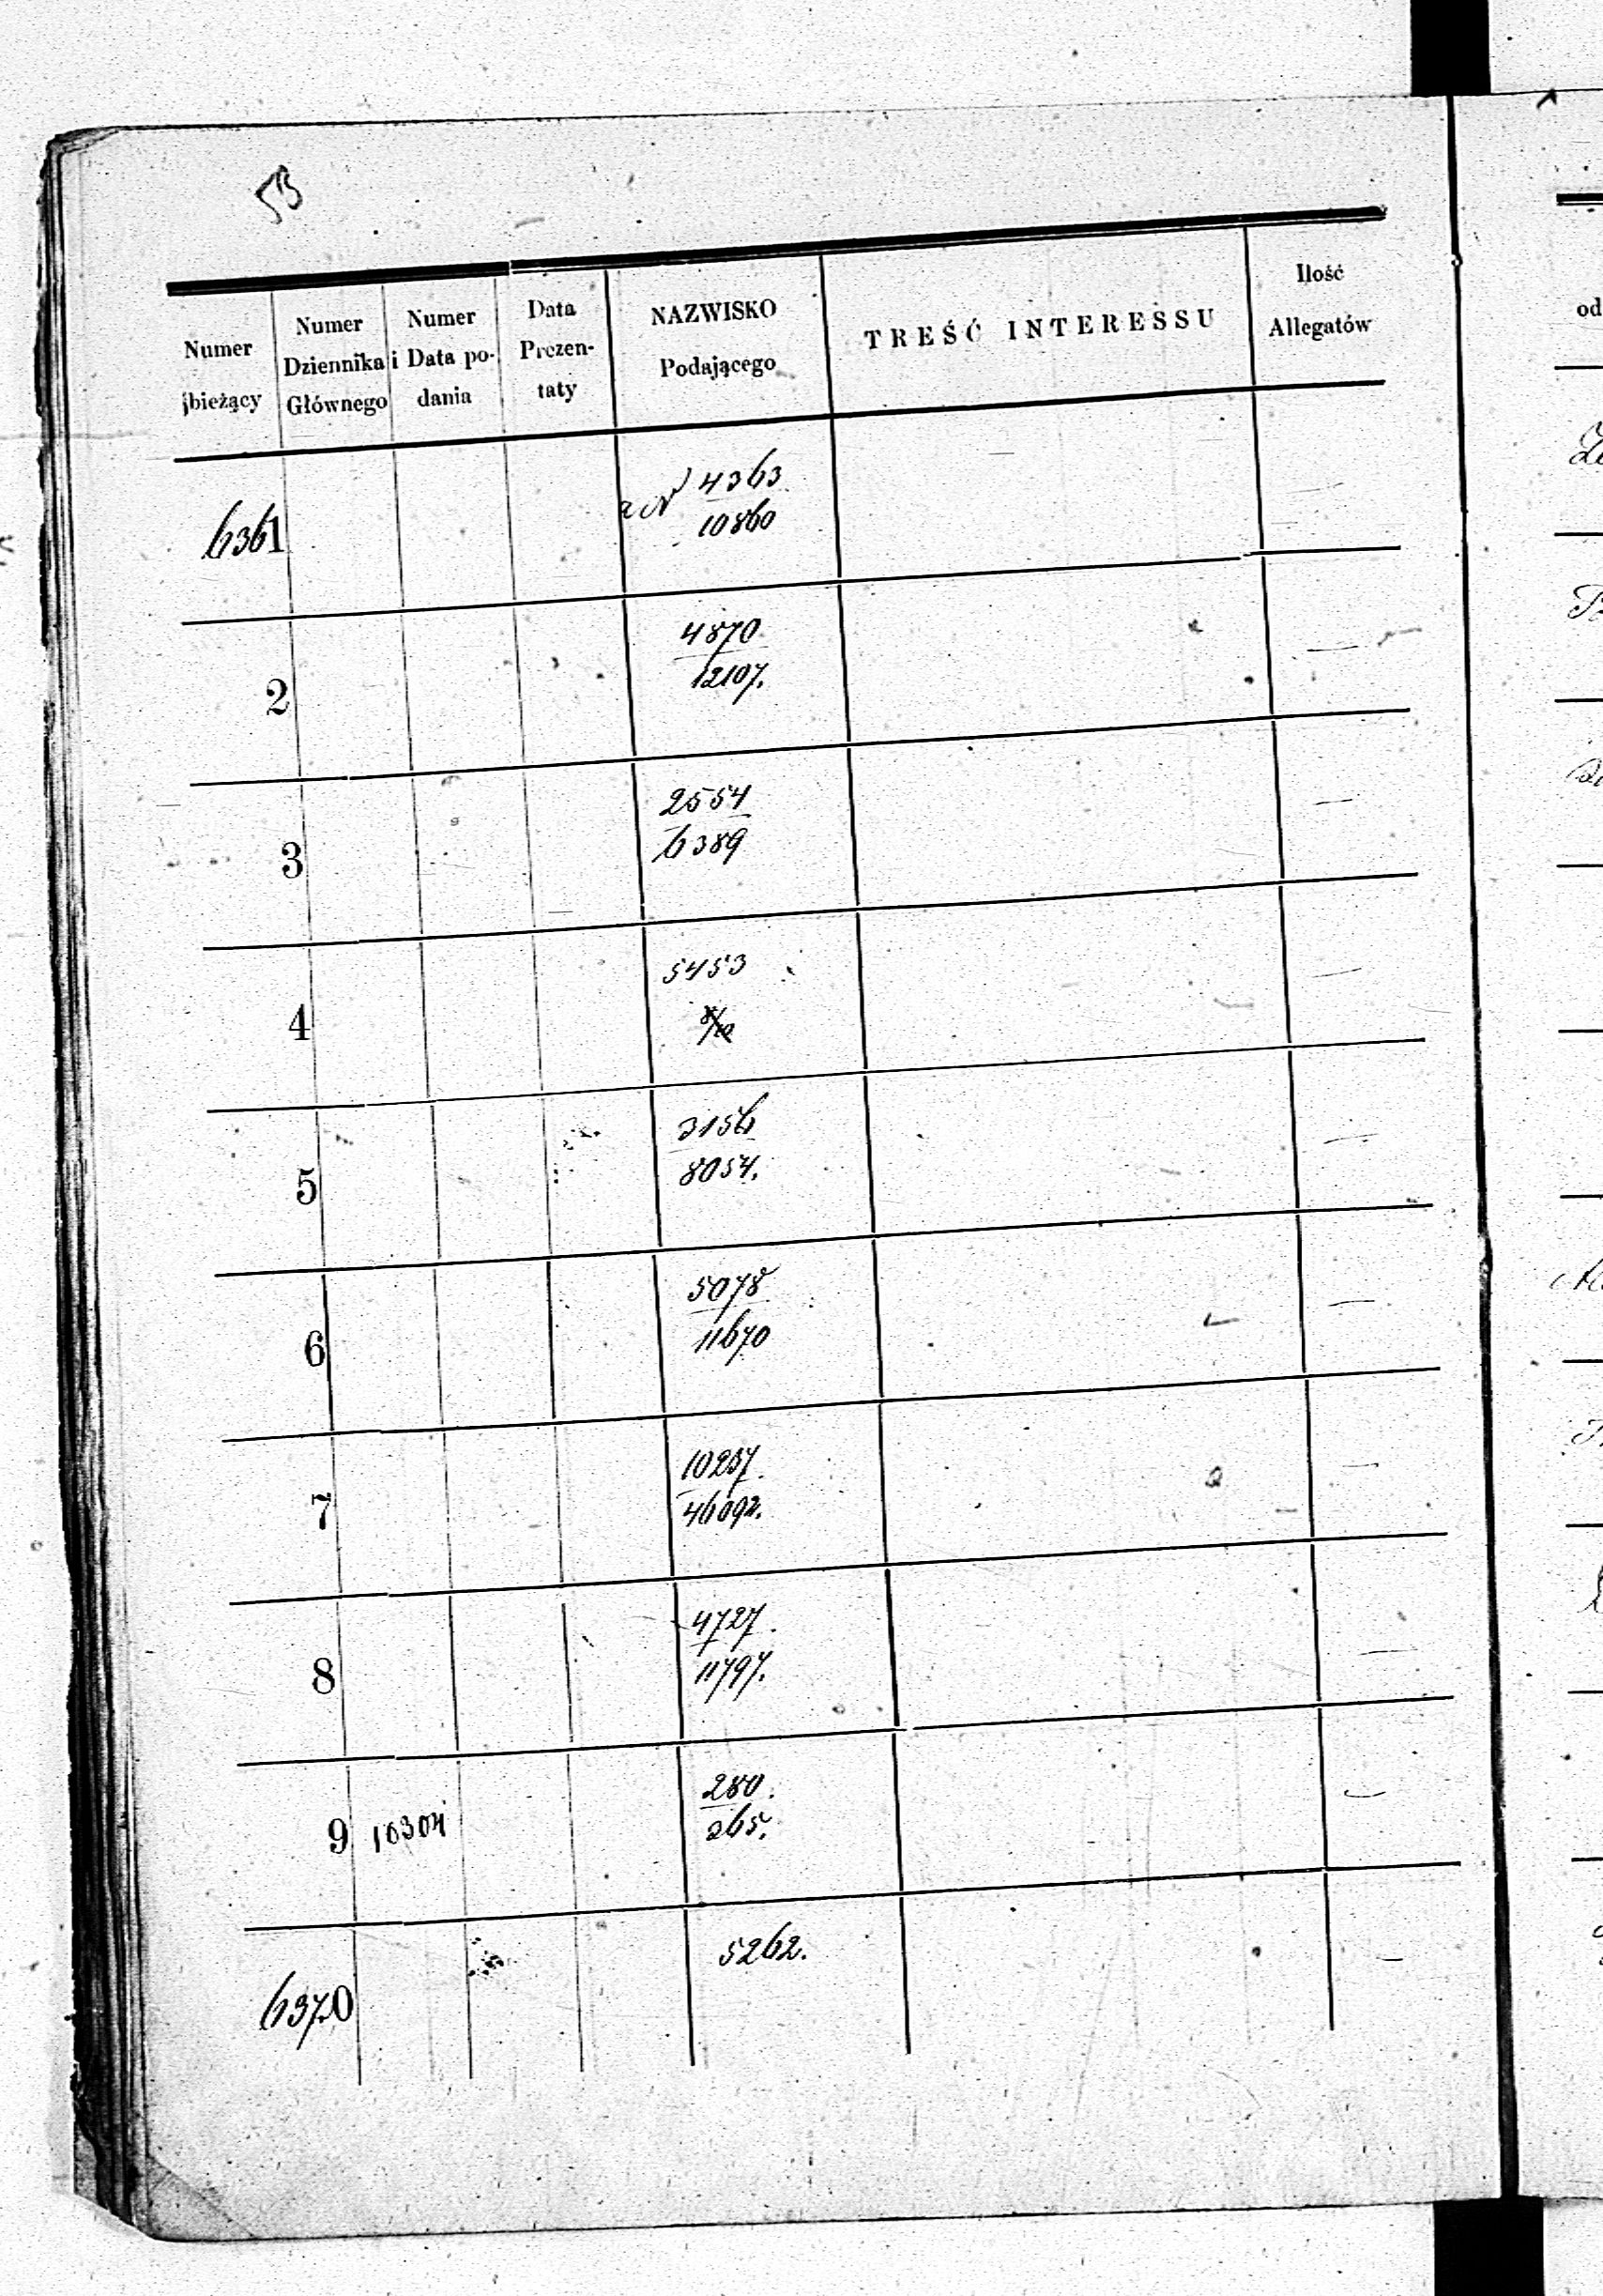 53
Numer bieżący
Numer Dziennika Głównego
Numer i Data podania
Data Prezentaty
NAZWISKO Podającego
TREŚĆ INTERESSU
Ilość Allegatów
6361
4363
10860
2
4870
12107.
3
2554
6389
4
5453
5
3156
8054.
6
5078
11670
7
10257.
46092.
8
4727.
11797.
9 10304
280.
265.
6370
5262.